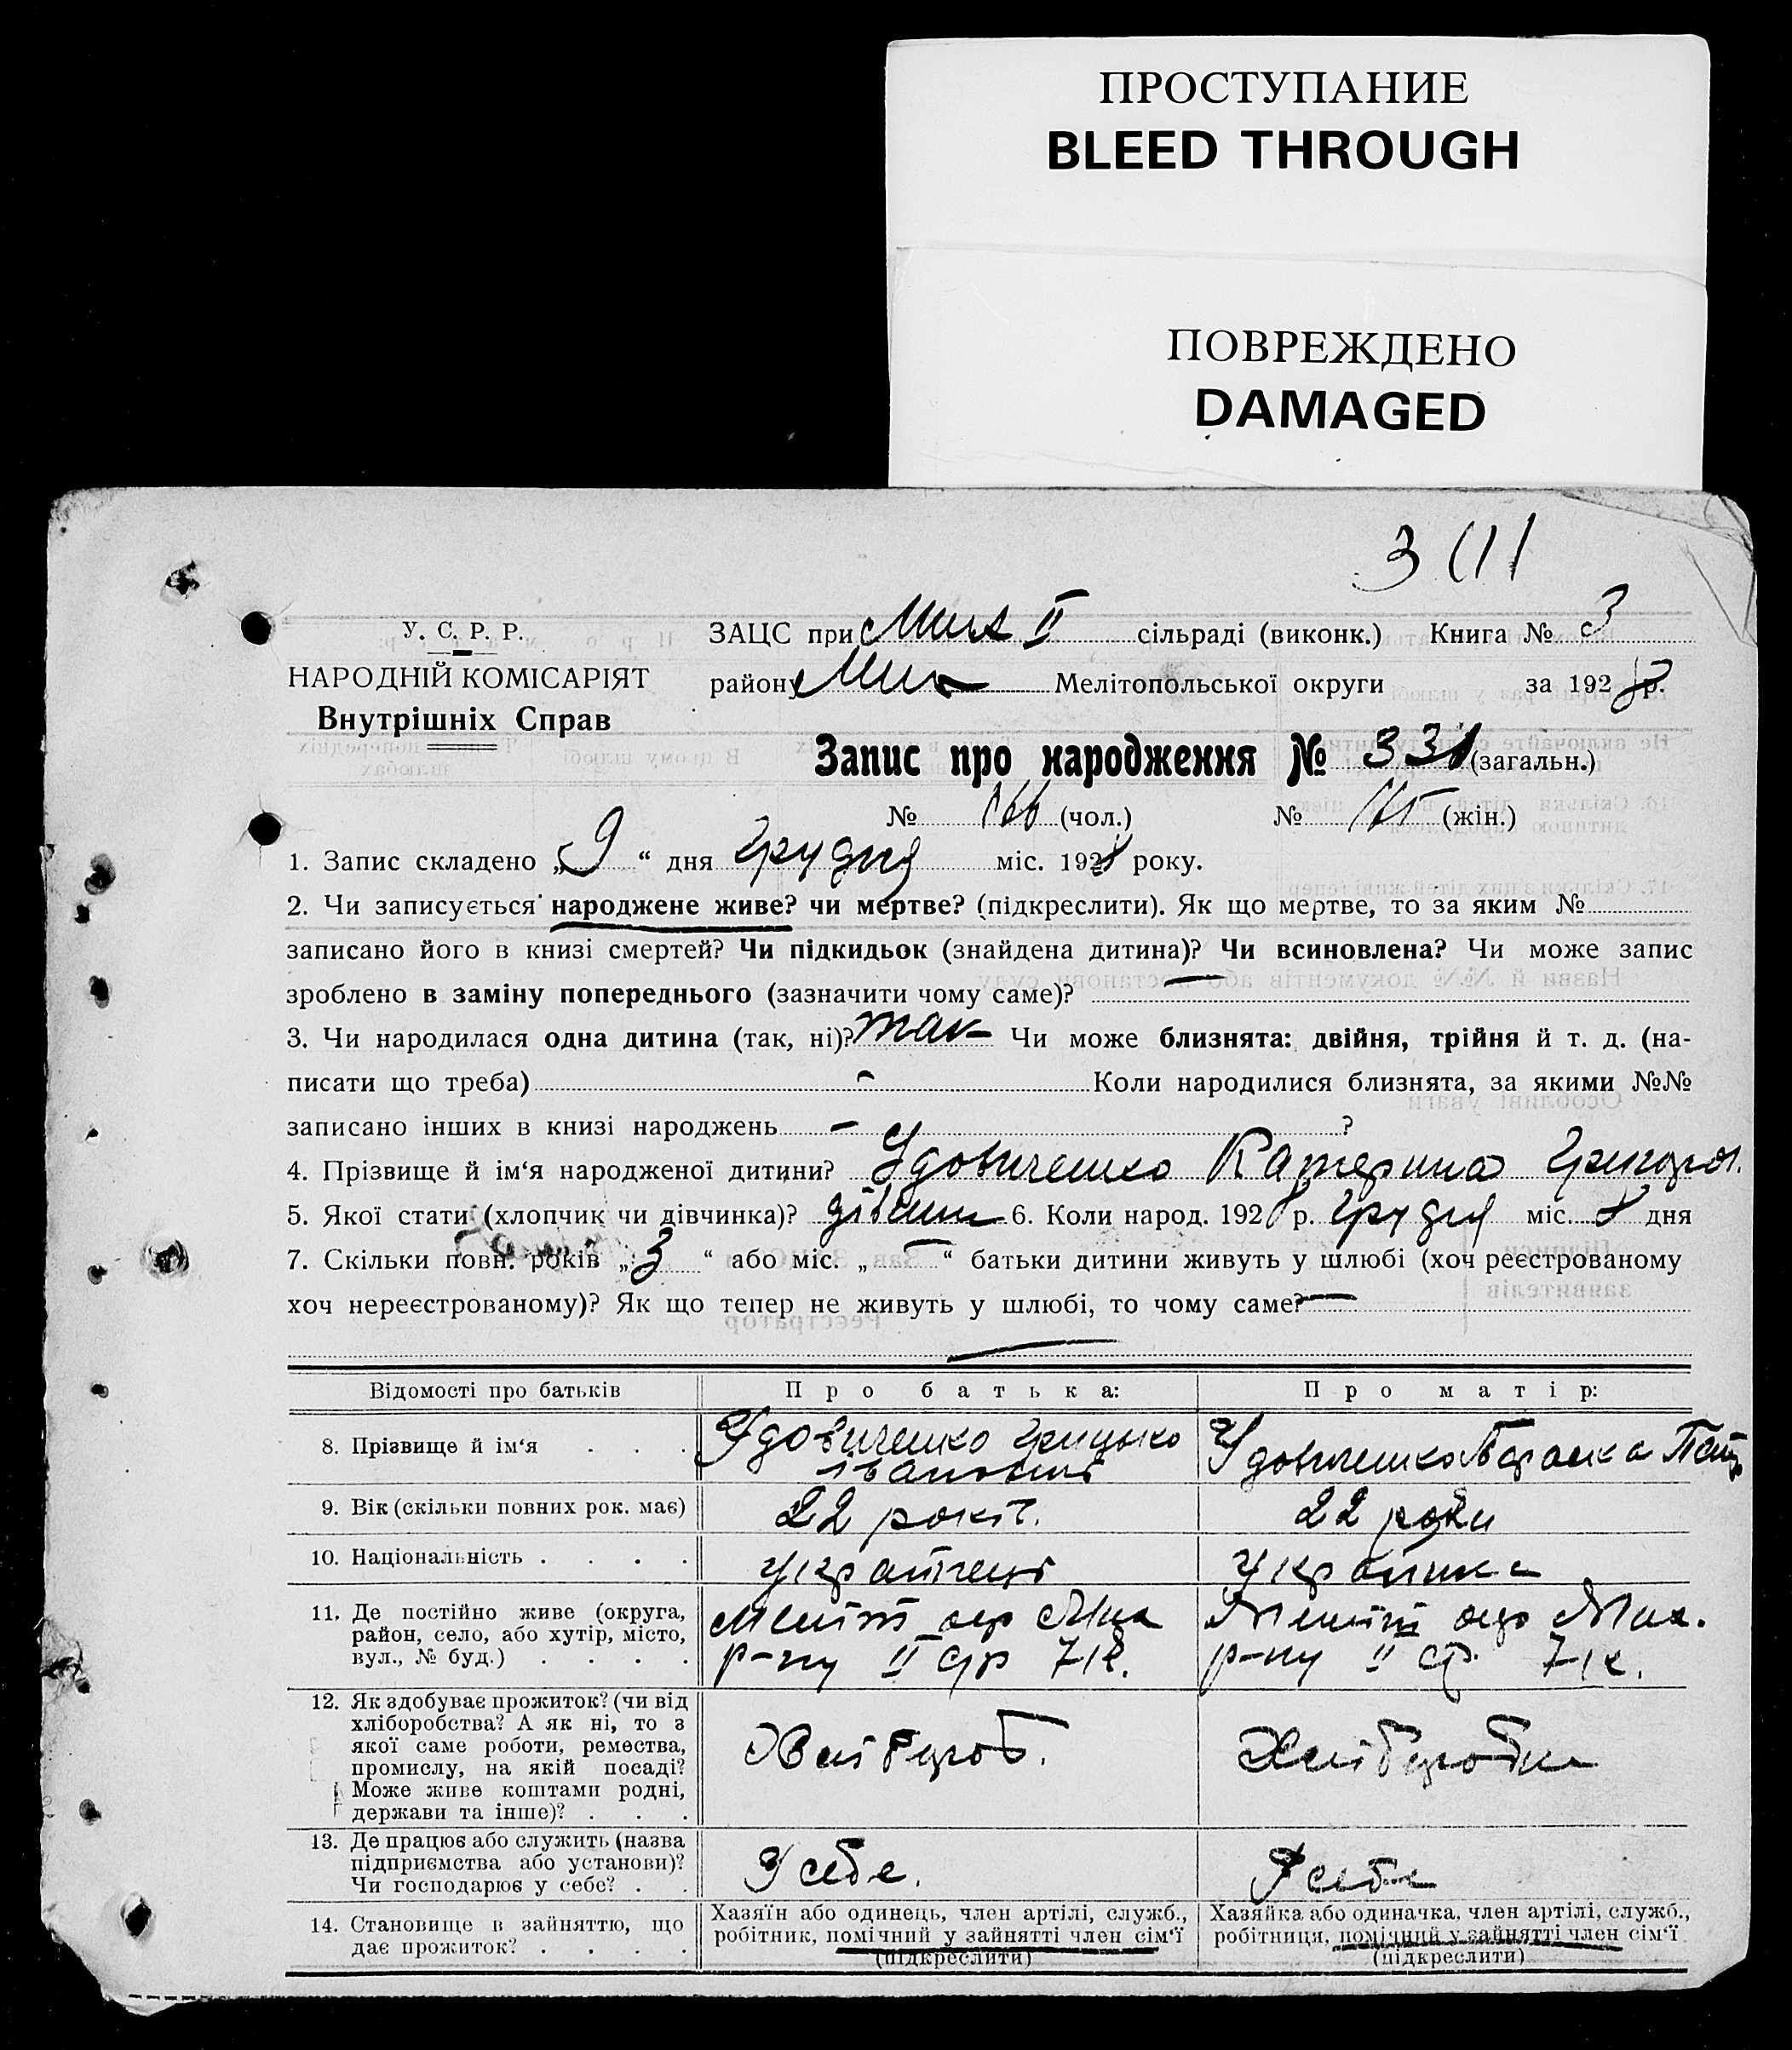 ПРОСТУПАНИЕ
BLEED THROUGH
ПОВРЕЖДЕНО
DAMAGED
У. С. Р. Р.
НАРОДНІЙ КОМІСАРІЯТ
Внутрішніх Справ
ЗАЦС при Мих II сільраді (виконк.) Книга № 3
району Мих Мелітопольської округи за 1928 р.
Запис про народження № 331 (загальн.)
№ 166 (чол.) № 165 (жін.)
1. Запис складено „9“ дня Грудня міс. 1928 року.
2. Чи записується народжене живе? чи мертве? (підкреслити). Як що мертве, то за яким №
записано його в книзі смертей? Чи підкидьок (знайдена дитина)? Чи всиновлена? Чи може запис
зроблено в заміну попереднього (зазначити чому саме)?
3. Чи народилася одна дитина (так, ні)? так Чи може близнята: двійня, трійня й т. д. (на-
писати що треба) - Коли народилися близнята, за якими №№
записано інших в книзі народжень - ?
4. Прізвище й ім‘я народженої дитини? Удовиченко Катерина Григоров.
5. Якої стати (хлопчик чи дівчинка)? дівчин 6. Коли народ. 1928 р. Грудня міс. 8 дня
7. Скільки повн. років „3“ або міс. „-“ батьки дитини живуть у шлюбі (хоч реєстрованому
хоч нереєстрованому)? Як що тепер не живуть у шлюбі, то чому саме? —
Відомості про батьків Про батька: Про матір:
8. Прізвище й ім‘я . . . Удовиченко Грицько Іванович Удовиченко Параска Петр
9. Вік (скільки повних рок. має) 22 років. 22 роки
10. Національність . . . . українець українка
11. Де постійно живе (округа,
район, село, або хутір, місто,
вул., № буд.) . . . .
Меліт окр Мих
р-ну II ср 712.
Меліт окр Мих.
р-ну II ср. 712.
12. Як здобуває прожиток? (чи від
хліборобства? А як ні, то з
якої саме роботи, ремества,
промислу, на якій посаді?
Може живе коштами родні,
держави та інше)? . . .
Хлібороб.
Хліборобка
13. Де працює або служить (назва
підприємства або установи)?
Чи господарює у себе? . .
У себе.
У себе
14. Становище в зайняттю, що
дає прожиток? . . . .
Хазяїн або одинець, член артілі, служб.,
робітник, помічний у зайнятті член сім‘ї
(підкреслити)
Хазяйка або одиначка, член артілі, служб.,
робітниця, помічний у зайнятті член сім‘ї
(підкреслити)